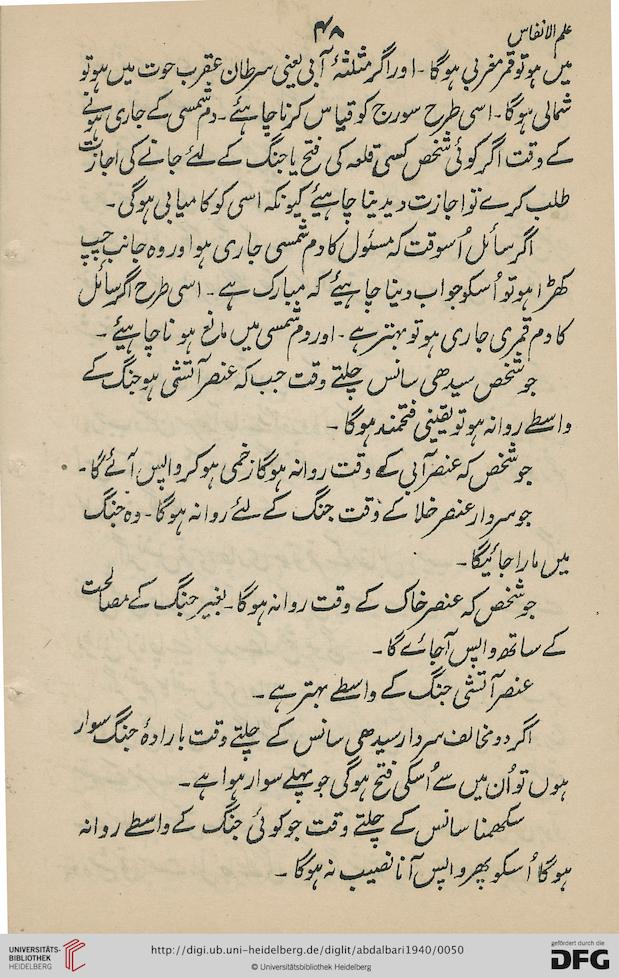 علم الانفاس
۴۸
میں ہو تو قمر مغربی ہوگا۔ اور اگر مثلثۂ آبی یعنی سرطان عقرب حوت میں ہو تو
شمالی ہوگا۔ اسی طرح سورج کو قیاس کرنا چاہئے۔ دم شمسی کے جاری ہونے
کے وقت اگر کوئی شخص کسی قلعہ کی فتح یا جنگ کے لئے جانے کی اجازت
طلب کرے تو اجازت دیدینا چاہیئے کیونکہ اسی کو کامیابی ہوگی۔
اگر سائل اُسوقت کہ مسئول کا دم شمسی جاری ہو اور وہ جانب چپ
کھڑا ہو تو اُسکو جواب دینا چاہیئے کہ مبارک ہے۔ اسی طرح اگر سائل
کا دم قمری جاری ہو تو بہتر ہے۔ اور دم شمسی میں مانع ہونا چاہیئے۔
جو شخص سیدھی سانس چلتے وقت جب کہ عنصر آتشی ہو جنگ کے
واسطے روانہ ہو تو یقینی فتحمند ہوگا۔
جو شخص کہ عنصر آبی کے وقت روانہ ہوگا زخمی ہو کر واپس آئے گا۔
جو سردار عنصر خلا کے وقت جنگ کے لئے روانہ ہوگا۔ وہ جنگ
میں مارا جائیگا۔
جو شخص کہ عنصر خاک کے وقت روانہ ہوگا۔ بغیر جنگ کے مصالحت
کے ساتھ واپس آجائے گا۔
عنصر آتشی جنگ کے واسطے بہتر ہے۔
اگر دو مخالف سردار سیدھی سانس کے چلتے وقت بارادۂ جنگ سوار
ہوں تو اُن میں سے اُسکی فتح ہوگی جو پہلے سوار ہوا ہے۔
سکھمنا سانس کے چلتے وقت جو کوئی جنگ کے واسطے روانہ
ہوگا اُسکو پھر واپس آنا نصیب نہ ہوگا۔
UNIVERSITÄTS-
BIBLIOTHEK
HEIDELBERG
http://digi.ub.uni-heidelberg.de/diglit/abdalbari1940/0050
© Universitätsbibliothek Heidelberg
gefördert durch die
DFG